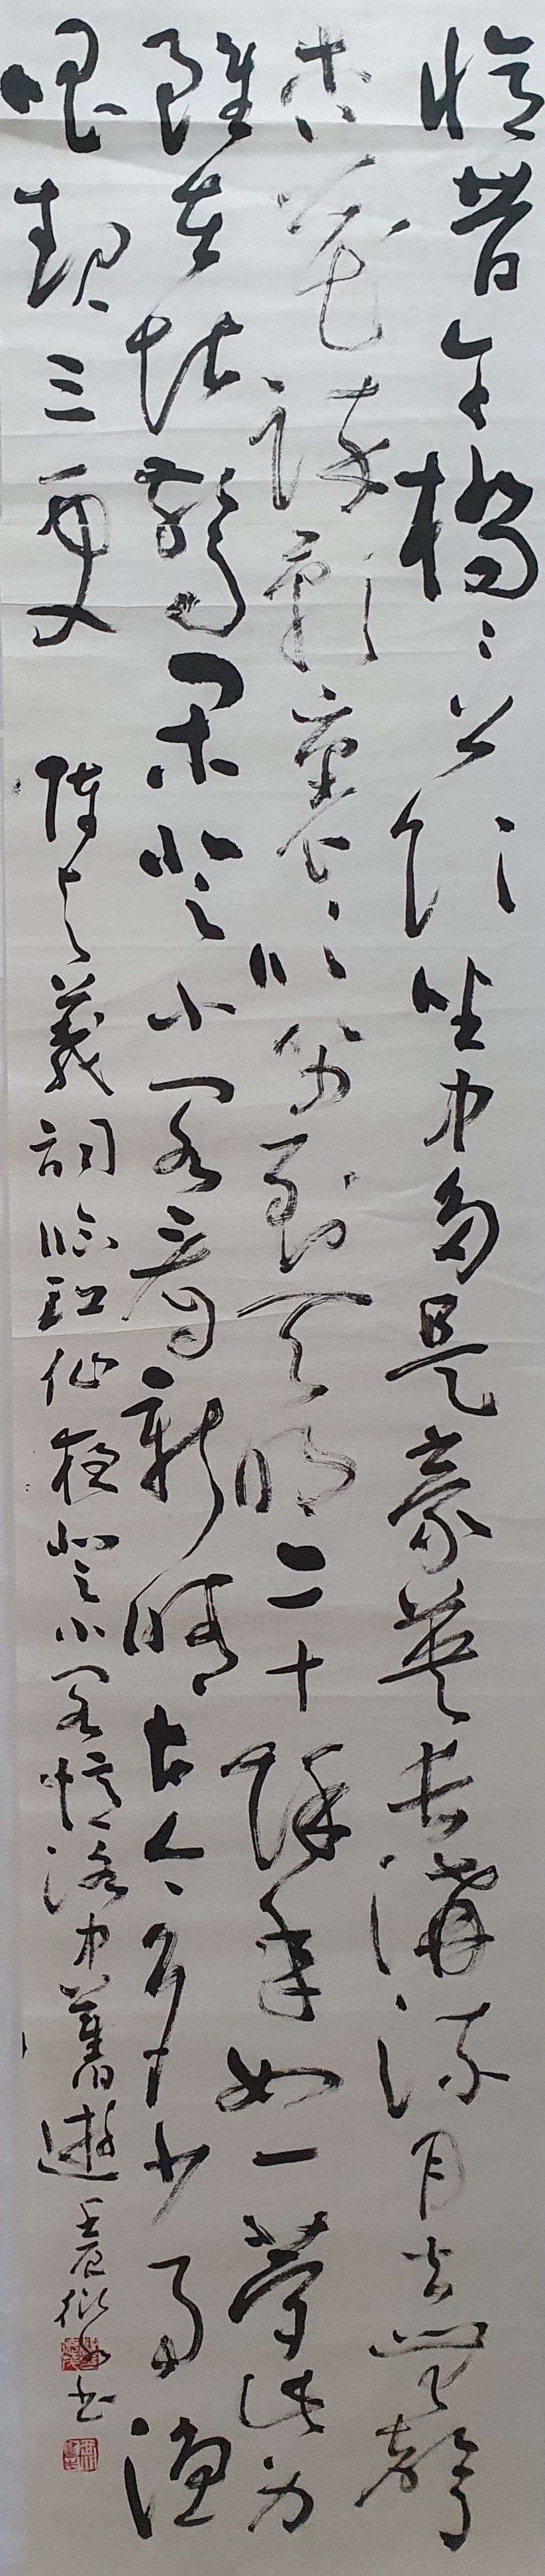 憶昔午橋〻上飲坐中多是豪英長溝流月去無聲
杏花疎影裏吹笛到天明二十餘年如一夢此身
雖在堪驚閑登小閣看新晴古今多少事漁
唱起三更 陳与義詞臨江仙夜登小閣憶洛中舊遊 壬辰 書